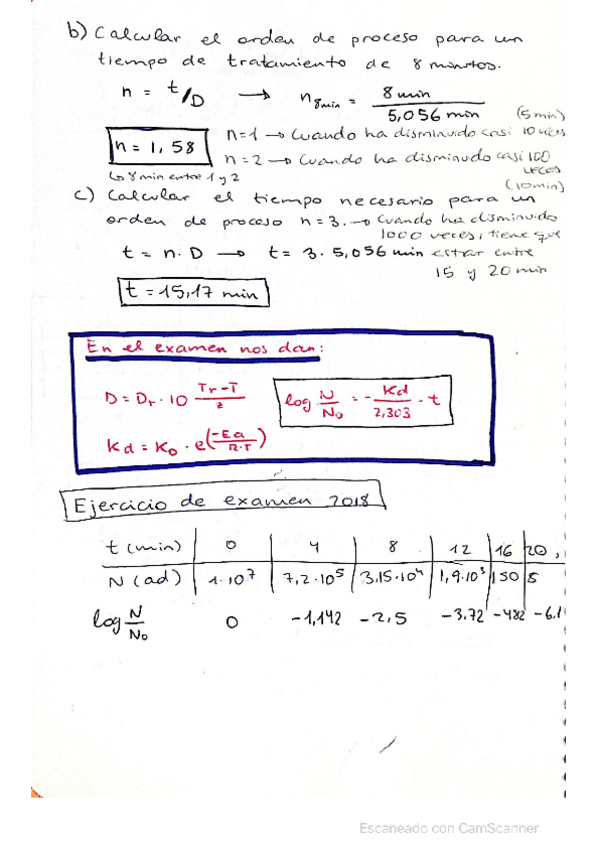 b) Calcular el orden de proceso para un
tiempo de tratamiento de 8 minutos.
n = t/D → n8min = 8 min / 5,056 min (5 min)
n = 1,58 n=1 → Cuando ha disminuido casi 10 veces
n = 2 → Cuando ha disminuido casi 100 veces
↳ 8 min entre 1 y 2 (10 min)
c) Calcular el tiempo necesario para un
orden de proceso n = 3. → Cuando ha disminuido
1000 veces, tiene que
t = n · D → t = 3 · 5,056 min estar entre
15 y 20 min
t = 15,17 min
En el examen nos dan:
D = Dr · 10 Tr-T/z log N/No = - Kd/2,303 · t
Kd = Ko · e(-Ea/R·T)
Ejercicio de examen 2018
t (min) 0 4 8 12 16 20
N (ad) 1·10⁷ 7,2·10⁵ 3,15·10⁴ 1,9·10³ 150 8
log N/No 0 -1,142 -2,5 -3,72 -4,82 -6,1
Escaneado con CamScanner